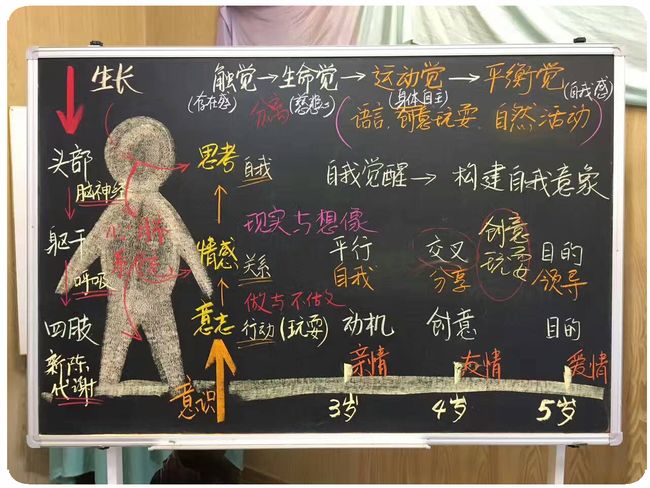 生长
触觉→生命觉→运动觉→平衡觉
(存在感)
(身体自主)
(自我感)
分离
(语言、创意玩耍、自然活动)
头部
思考
自我
自我觉醒→构建自我意象
脑神经
现实与想像
躯干
情感
关系
平行
交叉
创意
玩耍
目的
自我
分享
领导
呼吸
做与不做
四肢
意志
行动(玩耍)
动机
创意
目的
新陈
代谢
亲情
友情
爱情
意识
3岁
4岁
5岁